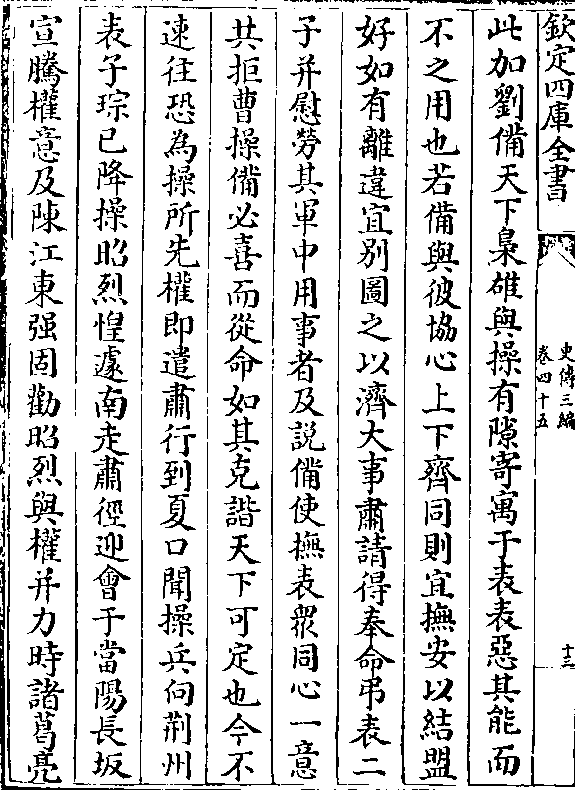 欽定四庫全書
史傳三編
卷四十五
十三
此加劉備天下梟雄與操有隙寄寓于表表惡其能而
不之用也若備與彼協心上下齊同則宜撫安以結盟
好如有離違宜别圖之以濟大事肅請得奉命弔表二
子并慰勞其軍中用事者及説備使撫表衆同心一意
共拒曹操備必喜而從命如其克諧天下可定也今不
速往恐為操所先權即遣肅行到夏口聞操兵向荆州
表子琮已降操昭烈惶遽南走肅徑迎會于當陽長坂
宣騰權意及陳江東强固勸昭烈與權并力時諸葛亮